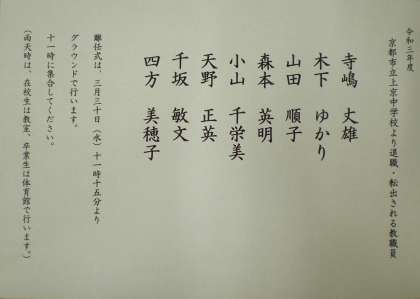 令和三年度
京都市立上京中学校より退職・転出される教職員
寺嶋 丈雄
木下 ゆかり
山田 順子
森本 英明
小山 千栄美
天野 正英
千坂 敏文
四方 美穂子
離任式は、三月三十日（水）十一時十五分より
グラウンドで行います。
十一時に集合してください。
（雨天時は、在校生は教室、卒業生は体育館で行います。）